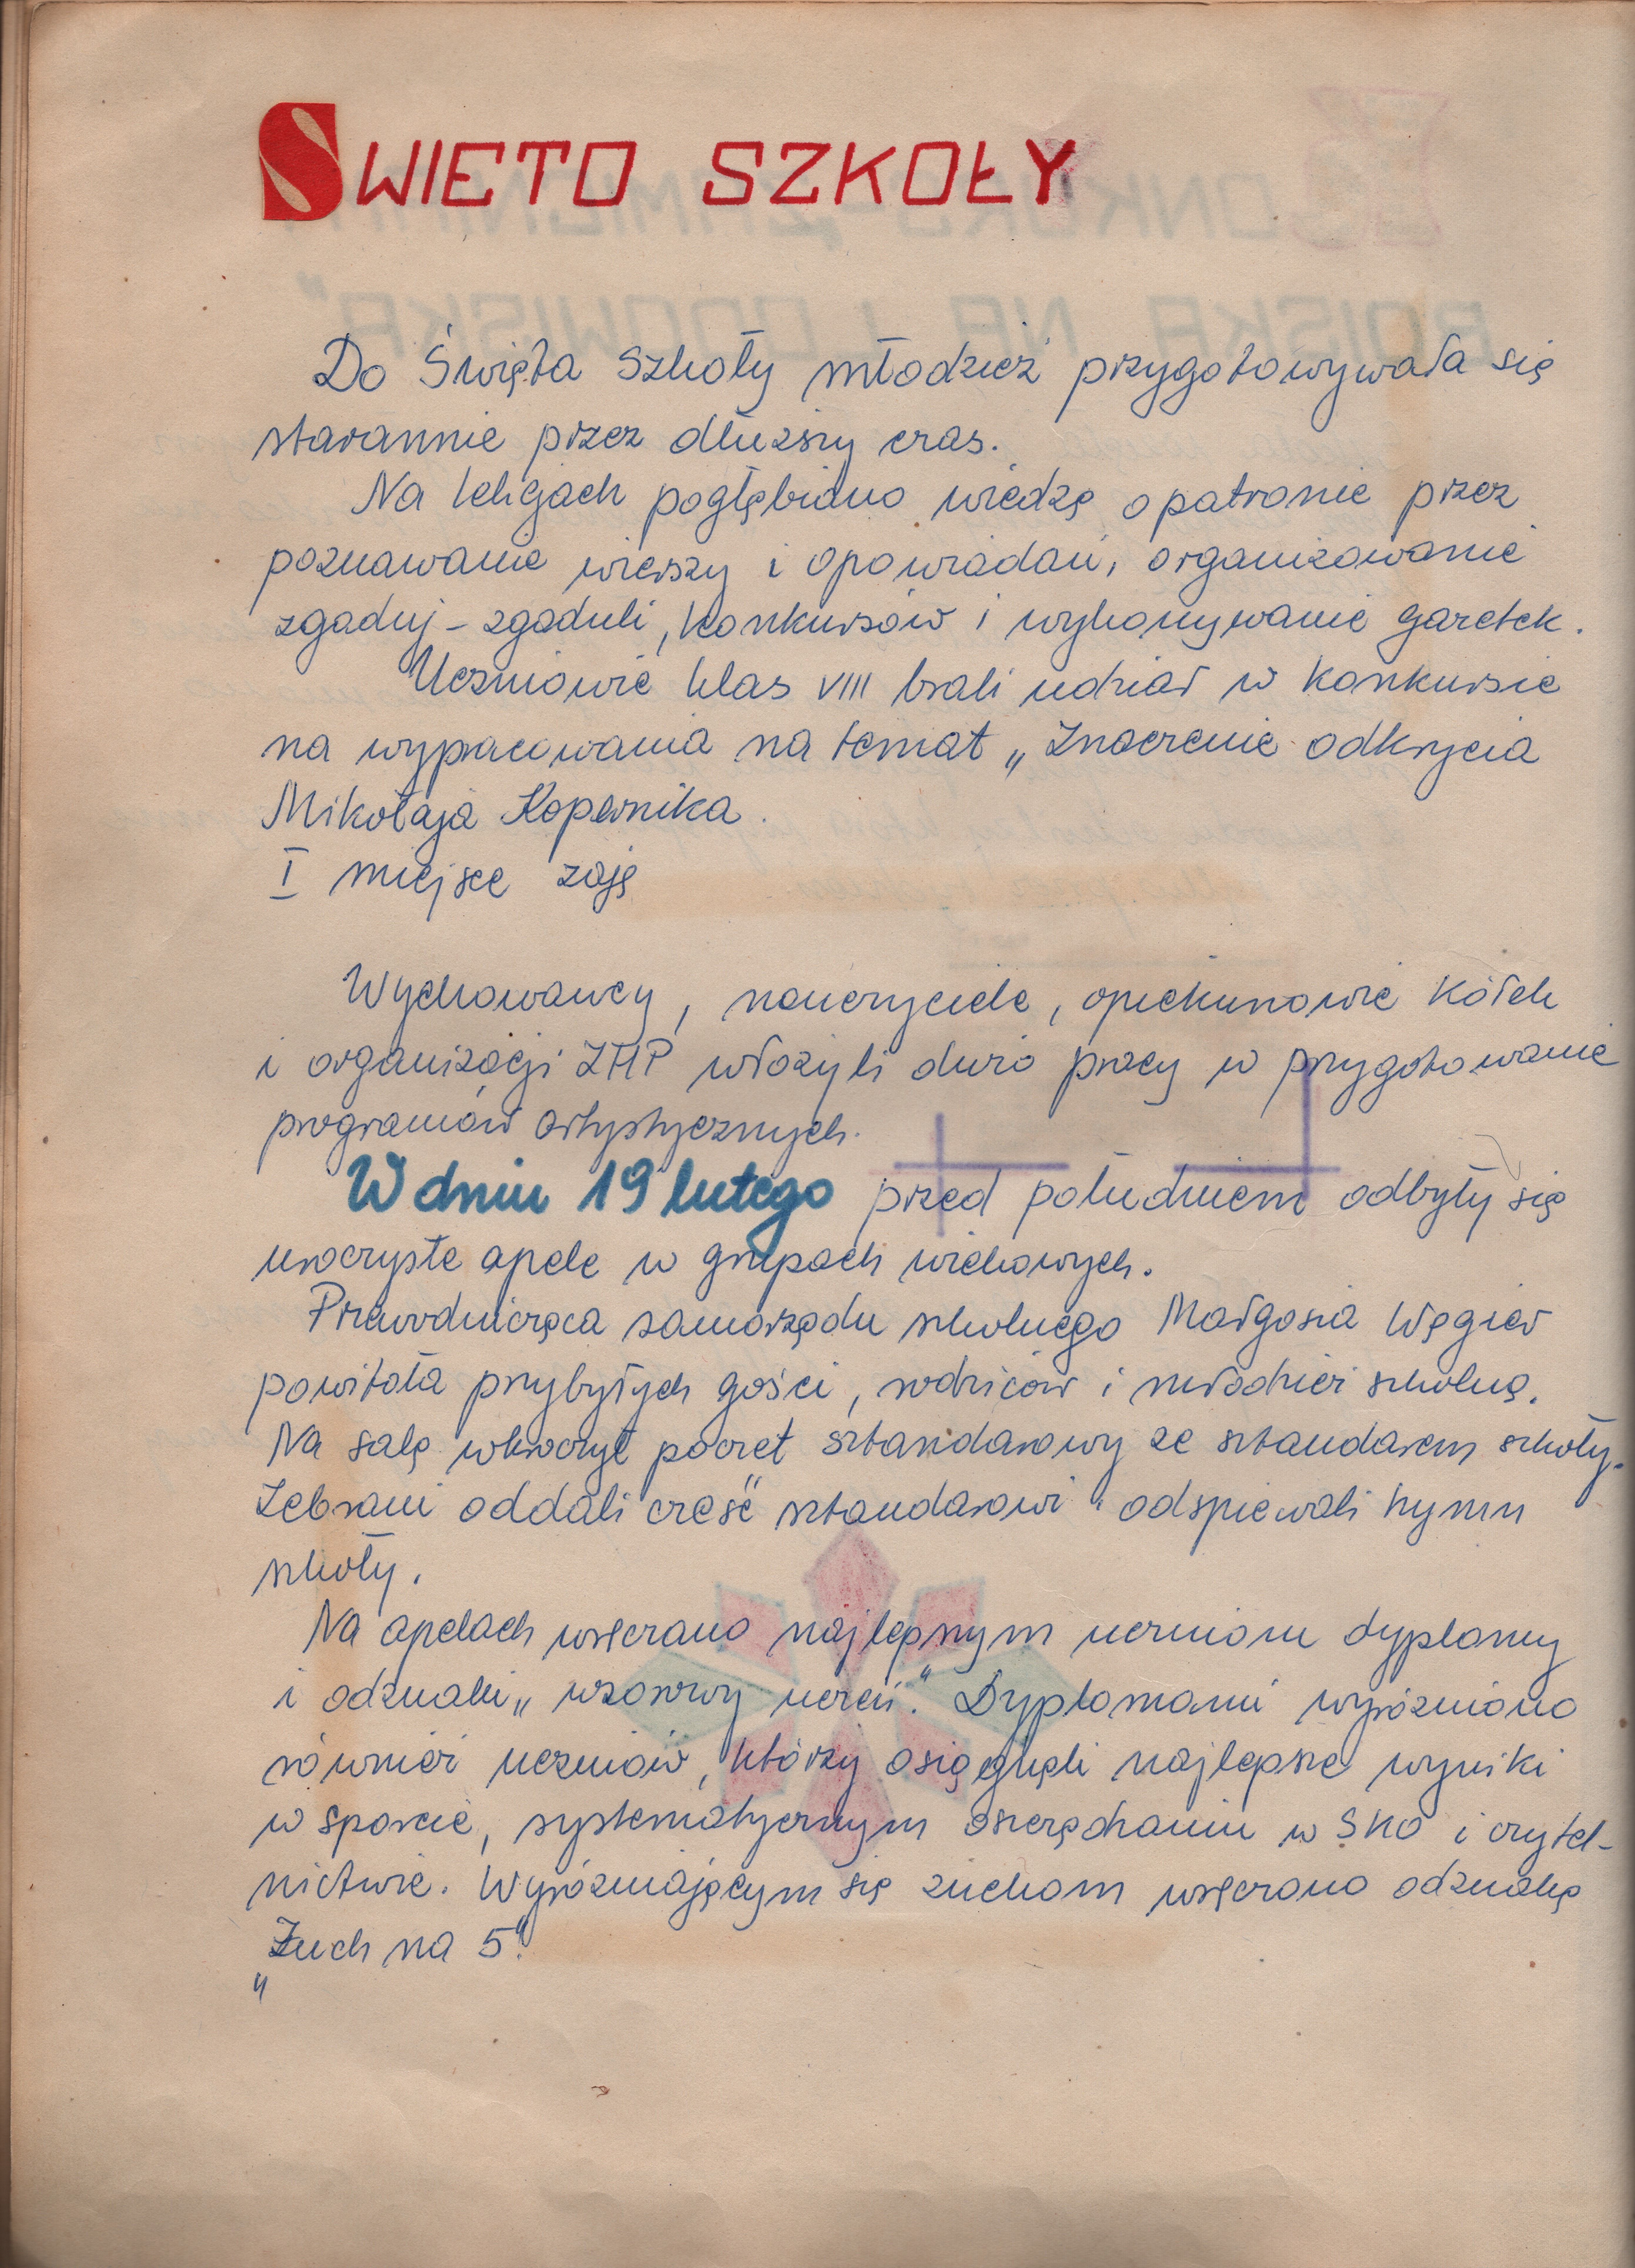 SWIETO SZKOŁY
Do Święta Szkoły młodzież przygotowywała się
starannie przez dłuższy czas.
Na lekcjach pogłębiano wiedzę o patronie przez
poznawanie wierszy i opowiadań, organizowanie
zgaduj-zgaduli, konkursów i wykonywanie gazetek.
Uczniowie klas VIII brali udział w konkursie
na wypracowania na temat „Znaczenie odkrycia
Mikołaja Kopernika.
I miejsce zaję
Wychowawcy, nauczyciele, opiekunowie kółek
i organizacji ZHP włożyli dużo pracy w przygotowanie
programów artystycznych.
W dniu 19 lutego przed południem odbyły się
uroczyste apele w grupach wiekowych.
Przewodnicząca samorządu szkolnego Małgosia Węgier
powitała przybyłych gości, rodziców i młodzież szkolną.
Na salę wkroczył poczet sztandarowy ze sztandarem szkoły.
Zebrani oddali cześć sztandarowi i odspiewali hymn
szkoły.
Na apelach wręczano najlepszym uczniom dyplomy
i odznaki „wzorowy uczeń". Dyplomami wyróżniono
również uczniów, którzy osiągnęli najlepsze wyniki
w sporcie, systematycznym oszczędzaniu w SKO i czytel-
nictwie. Wyróżniającym się zuchom wręczono odznakę
„Zuch na 5".